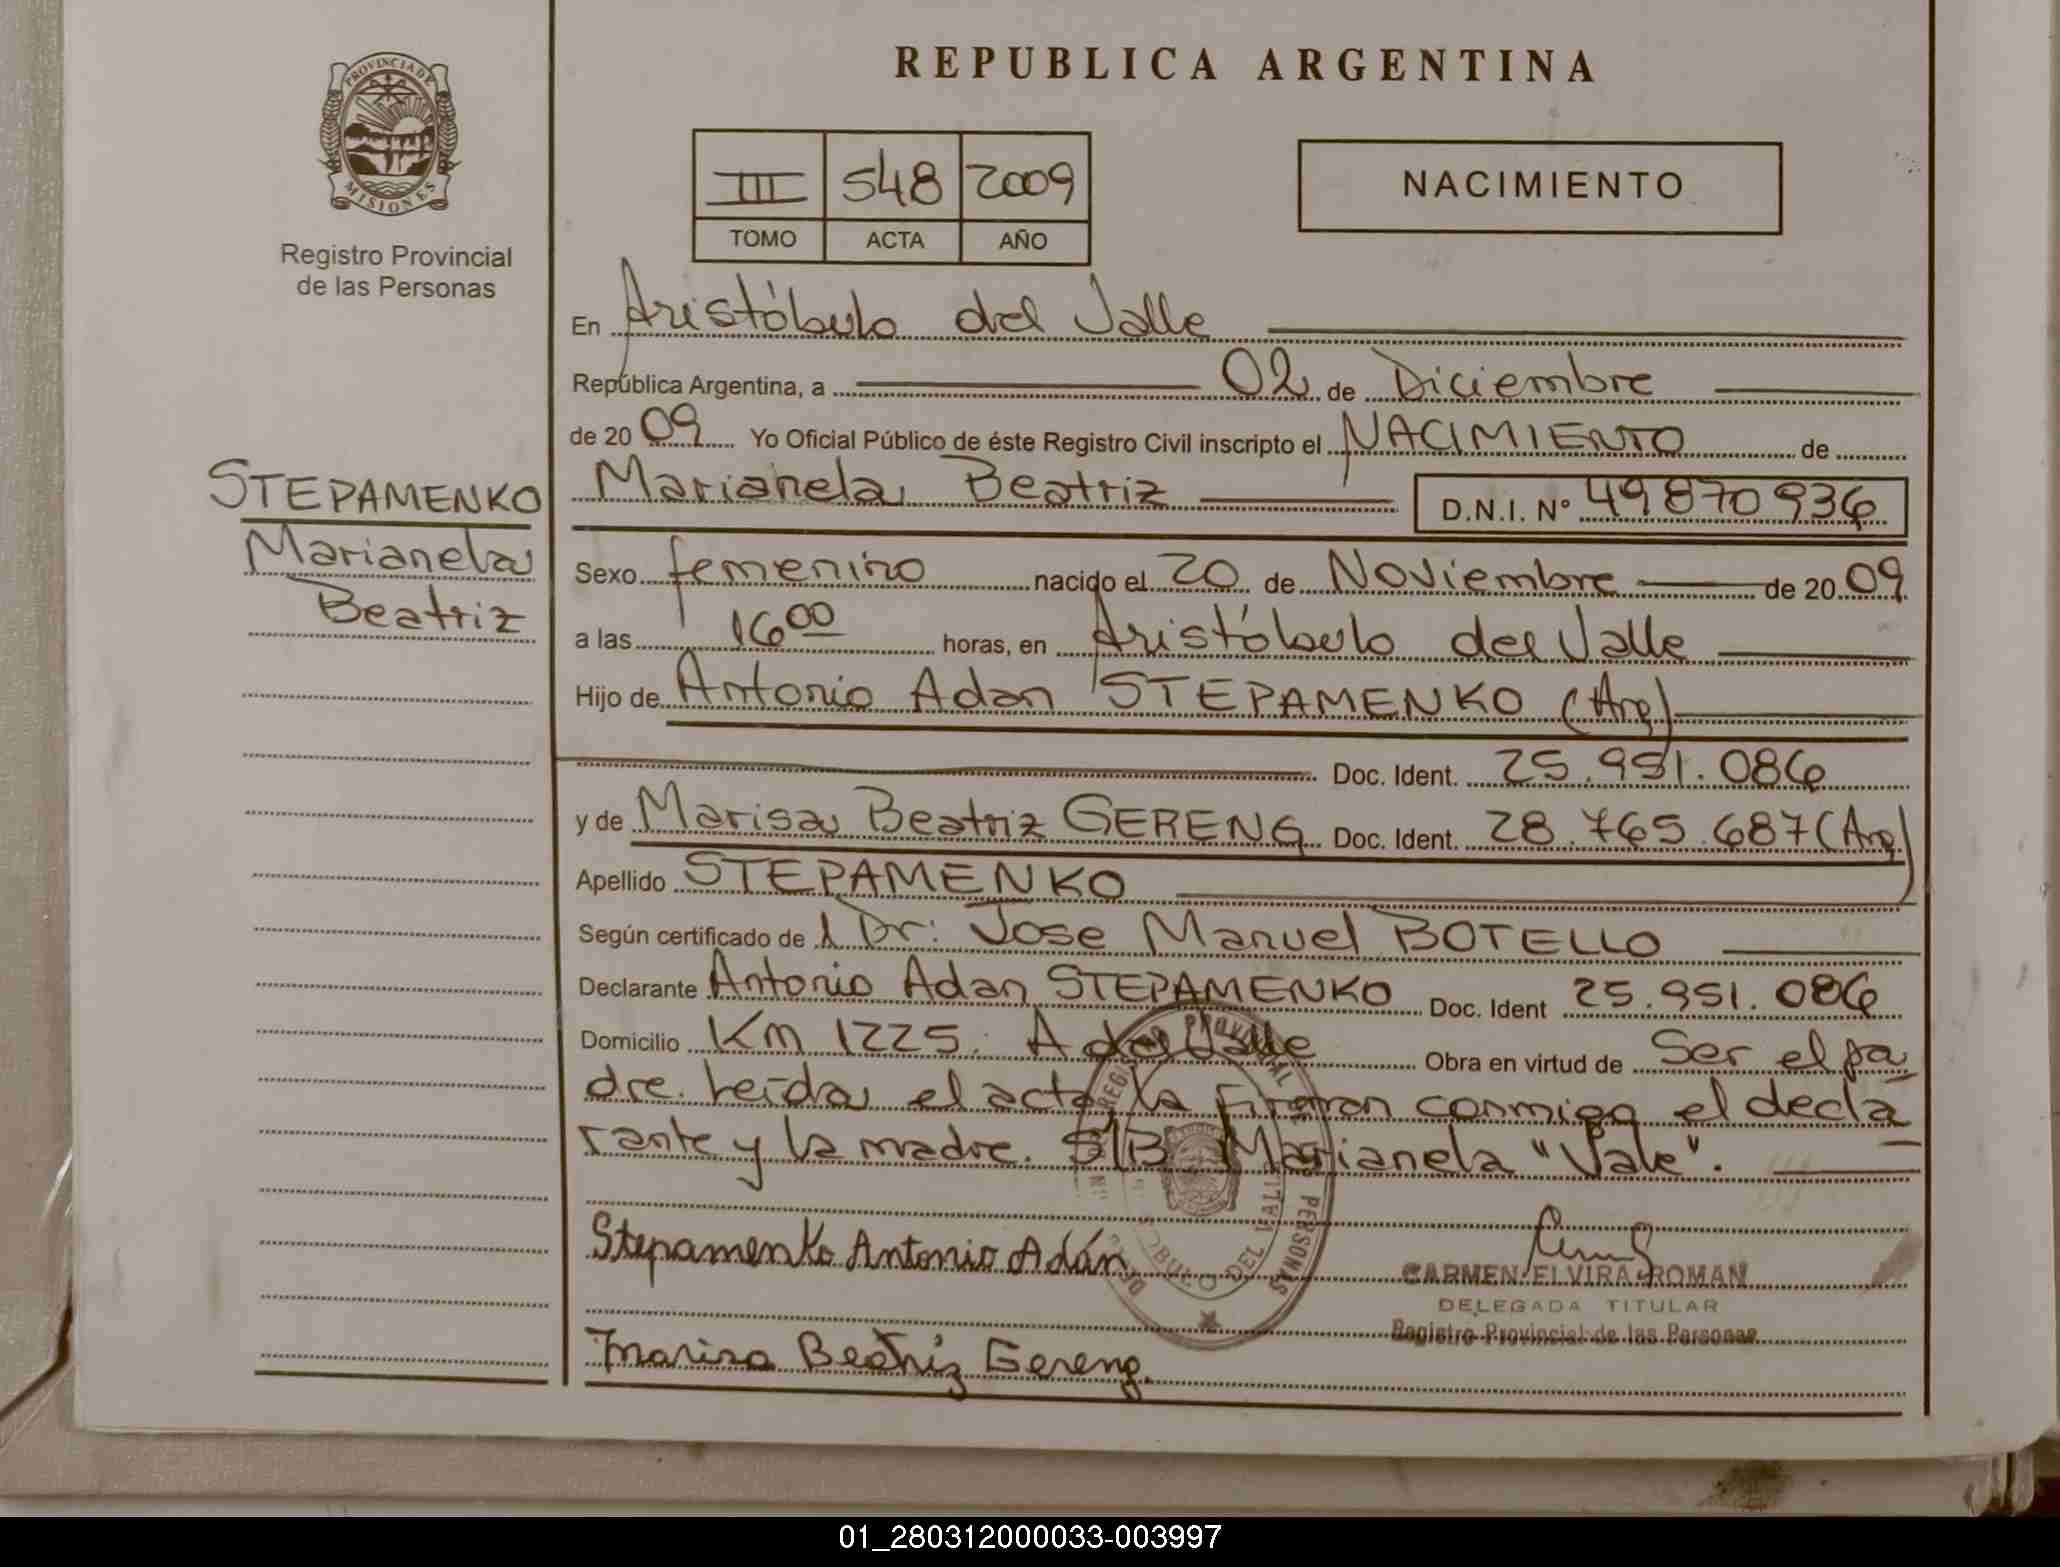 PROVINCIA DE
MISIONES
Registro Provincial
de las Personas
STEPAMENKO
Marianela
Beatriz
REPUBLICA ARGENTINA
III 548 2009
TOMO ACTA AÑO
NACIMIENTO
En Aristóbulo del Valle
República Argentina, a 02 de Diciembre
de 20 09 Yo Oficial Público de éste Registro Civil inscripto el NACIMIENTO de
Marianela Beatriz D.N.I. Nº 49870936
Sexo femenino nacido el 20 de Noviembre de 20 09
a las 16 00 horas, en Aristóbulo del Valle
Hijo de Antonio Adan STEPAMENKO (Arg)
Doc. Ident. 25.951.086
y de Marisa Beatriz GERENG Doc. Ident. 28.765.687 (Arg)
Apellido STEPAMENKO
Según certificado de l Dr: Jose Manuel BOTELLO
Declarante Antonio Adan STEPAMENKO Doc. Ident 25.951.086
Domicilio Km 1225. A del Valle Obra en virtud de Ser el pa
dre. Leída el acta, la Firman conmigo el decla
rante y la madre. S/B Marianela "Vale".
Stepamenko Antonio Adán
CARMEN ELVIRA ROMAN
DELEGADA TITULAR
Registro Provincial de las Personas
Marisa Beatriz Gereng.
01_280312000033-003997